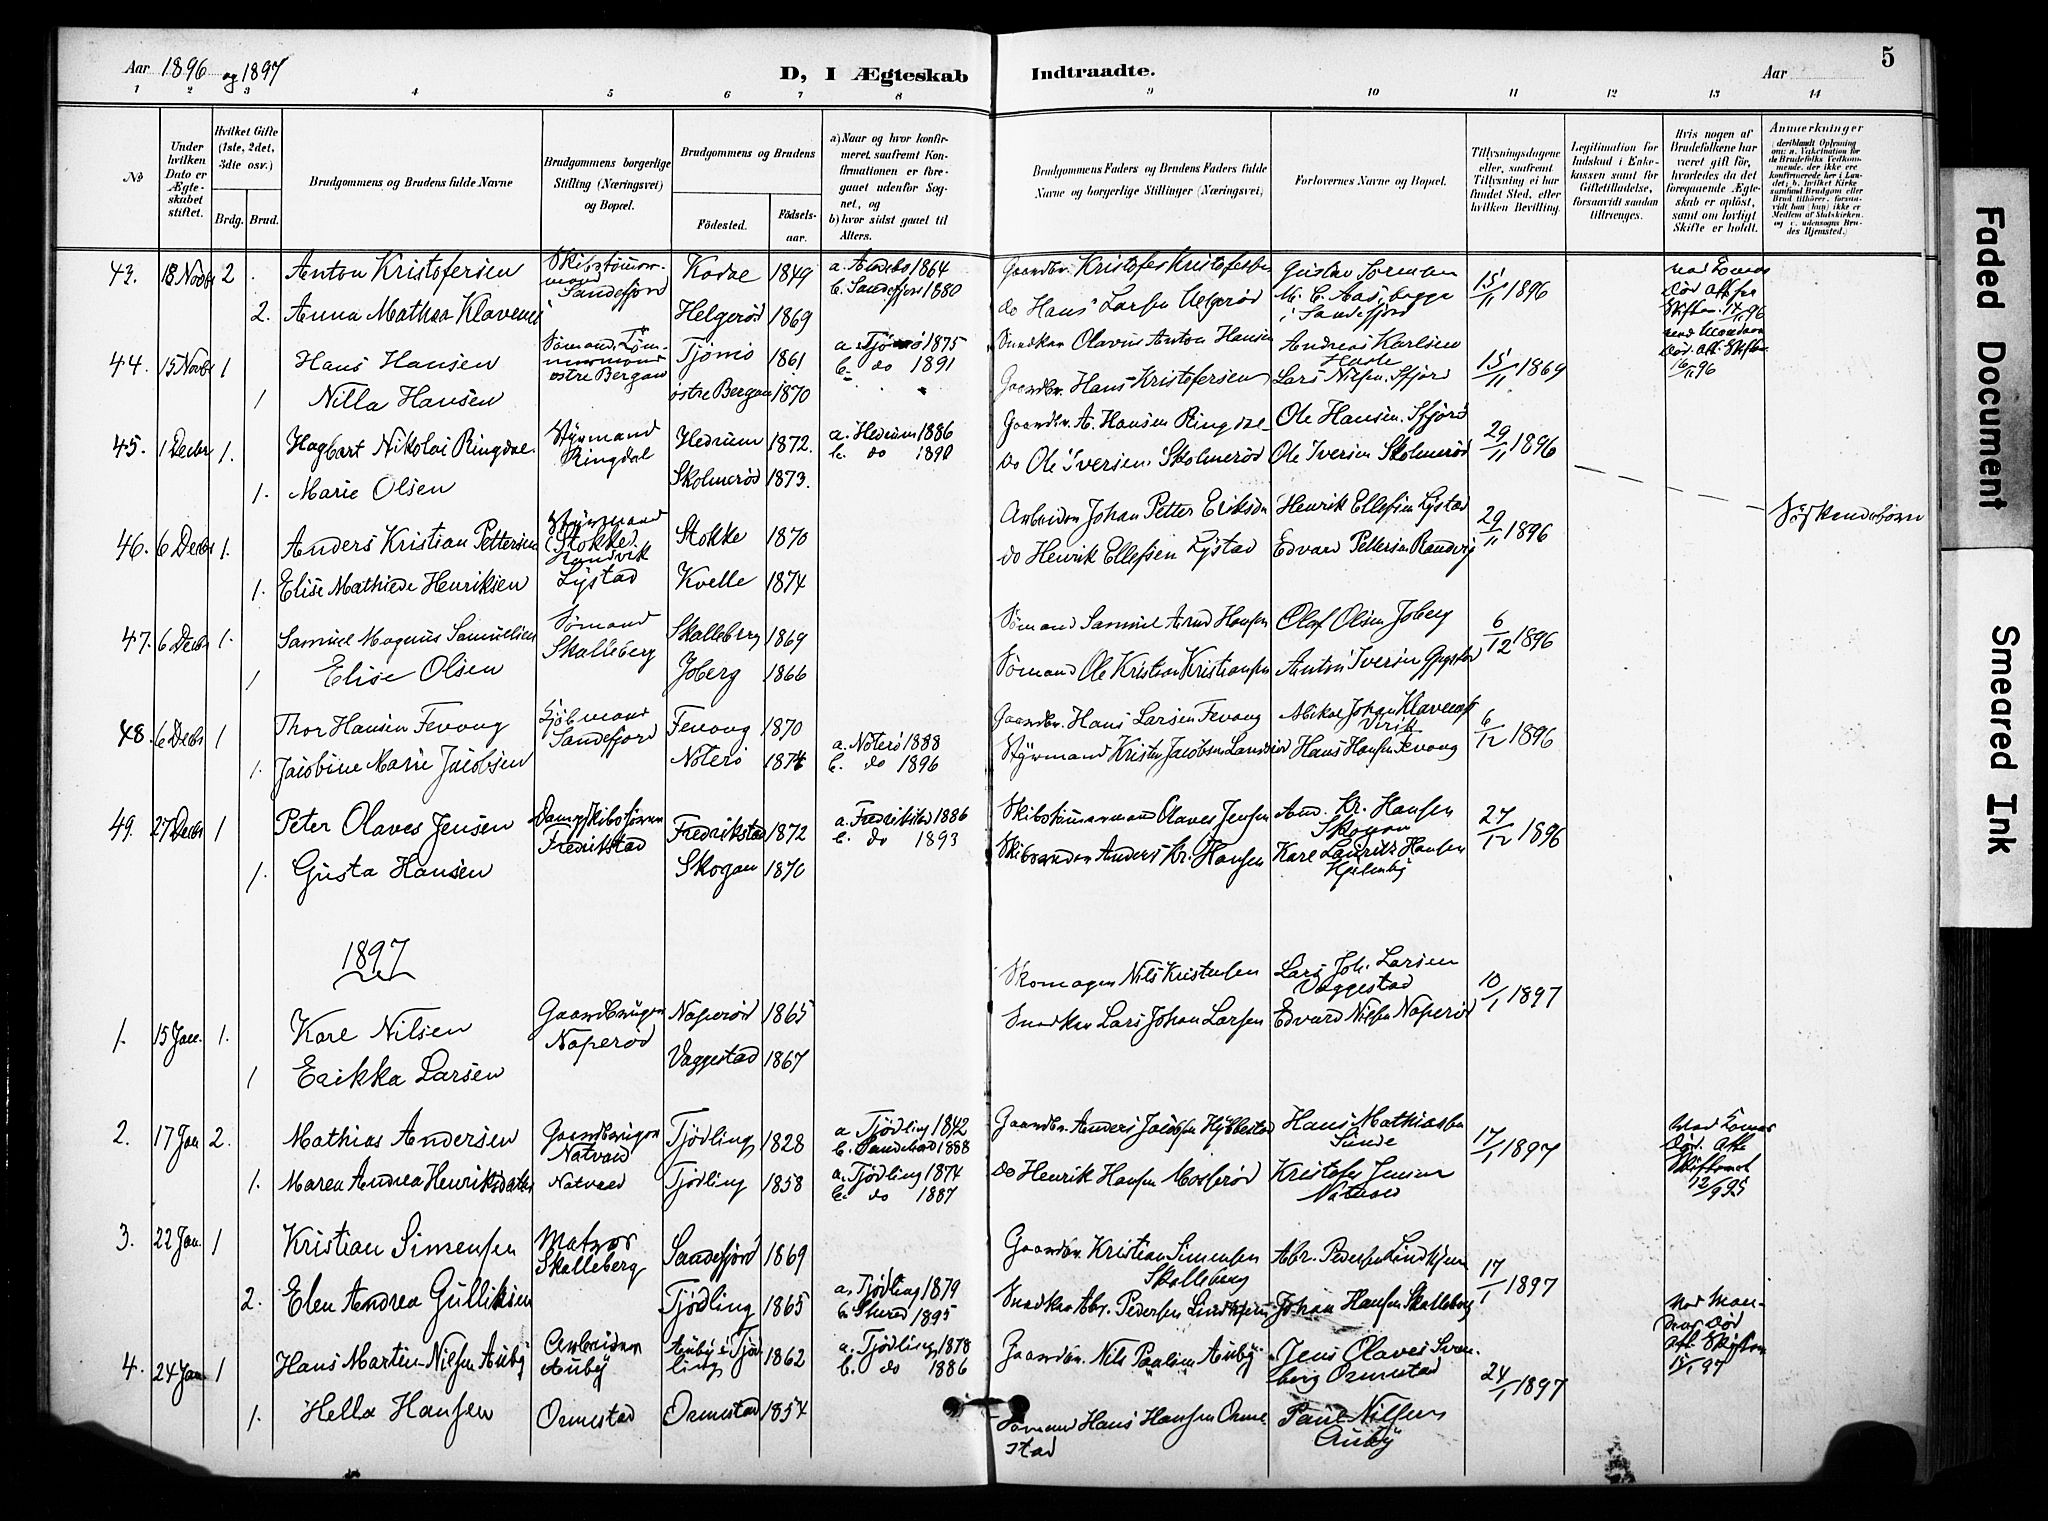 Aar 1896 og 1897
D, I Ægteskab Indtraadte.
Aar
5
1 2 3 4 5 6 7 8 9 10 11 12 13 14
No
Under hvilken Dato er Ægteskabet stiftet.
Hvilket Gifte (1ste, 2det, 3die osv.)
Brdg. Brud.
Brudgommens og Brudens fulde Navne
Brudgommens borgerlige Stilling (Næringsvei) og Bopæl.
Brudgommens og Brudens
Fødested. Fødselsaar.
a) Naar og hvor konfirmeret, saafremt Konfirmationen er foregaaet udenfor Sognet, og
b) hvor sidst gaaet til Alters.
Brudgommens Faders og Brudens Faders fulde Navne og borgerlige Stillinger (Næringsvei)
Forlovernes Navne og Bopæl.
Tillysningsdagene eller, saafremt Tillysning ei har fundet Sted, efter hvilken Bevilling.
Legitimation for Indskud i Enkekassen samt for Giftetilladelse, forsaavidt saadan tiltrænges.
Hvis nogen af Brudefolkene har været gift før, hvorledes da det foregaaende Ægteskab er opløst, samt om lovligt Skifte er holdt.
Anmerkninger
43. 18 Novbr 2 Anton Kristofersen Skibstømmermand Sandefjord Kodal 1849 a. Andebo 1864 b. Sandefjord 1880 Gaardbr. Kristofer Kristofersen Gustav Sørman 15/11 1896
2. Anna Mathea Klavenes Helgerød 1869 do Hans Larsen Helgerød M. C. Aas, begge i Sandefjord
44. 15 Novbr 1 Hans Hansen Sømand, Tømmermand østre Bergan Tjømø 1861 a. Tjømø 1875 b. do 1891 Snedker Olavus Anton Hansen Andreas Karlsen 15/11 1869
1 Nilla Hansen østre Bergan 1870 Gaardbr. Hans Kristofersen Lars Nilsen, Sfjord
45. 1 Decbr 1. Hagbart Nikolai Ringdal Styrmand Ringdal Hedrum 1872. a. Hedrum 1886 b. do 1890 Gaardbr. A. Hansen Ringdal Ole Hansen, Sfjord 29/11 1896
1. Marie Olsen Skolmerød 1873. do Ole Iversen Skolmerød Ole Iversen Skolmerød
46. 6 Decbr 1. Anders Kristian Pettersen Styrmand (Stokke) Stokke 1870 Arbeider Johan Petter Eriksen Henrik Ellefsen Lystad 29/11 1896 Søskendebørn
1. Elise Mathilde Henriksen Lystad Kvelle 1874 do Henrik Ellefsen Lystad Edvard Pettersen
47. 6 Decbr 1. Samuel Magnus Samuelsen Sømand Skalleberg Skalleberg 1869 Sømand Samuel Arnd Hansen Olaf Olsen Joberg 6/12 1896
1 Elise Olsen Joberg 1866 Sømand Ole Kristian Kristiansen Anton Iversen
48. 6 Decbr 1 Thor Hansen Fevang Sandefjord Fevang 1870 Gaardbr. Hans Larsen Fevang Mikal Johan Klavenes Virik 6/12 1896
1. Jacobine Marie Jacobsen Nøterø 1874 a. Nøterø 1888 b. do 1896 Styrmand Kristen Jacobsen Hans Hansen Fevang
49. 27 Decbr 1 Peter Olaves Jensen Fredrikstad Fredrikstad 1872 a. Fredrikstad 1886 b. do 1893 Skibstømmermand Olaves Jensen And. Kr. Hansen Skogan 27/12 1896
1. Gusta Hansen Skogan 1870 Anders Kr. Hansen Karl Lauritz Hansen
1897
1. 15 Jan. 1. Karl Nilsen Gaardbruger Naperød Naperød 1865 Skomager Nils Kristensen Lars Joh. Larsen Vaggestad 10/1 1897
1 Erikka Larsen Vaggestad 1867 Snedker Lars Johan Larsen Edvard Nilsen Naperød
2. 17 Jan 2. Mathias Andersen Gaardbruger Natvald Tjødling 1828 a. Tjødling 1842 b. Sandeherred 1888 Gaardbr. Anders Jacobsen Hybbestad Hans Mathiassen Sunde 17/1 1897
1. Maren Andrea Henriksdatter Natvald Tjødling 1858 a. Tjødling 1874 b. do 1887 do Henrik Hansen Mosserød Kristofer Jensen Natvald 12/9 95
3. 22 Jan. 1 Kristian Simensen Matros Skalleberg Sandefjord 1869 Gaardbr. Kristian Simensen Skalleberg Abr. Pedersen Lindhjem 17/1 1897
2. Elen Andrea Gulliksen Tjødling 1865 a. Tjødling 1879 1895 Snedker Abr. Pedersen Lindhjem Johan Hansen Skalleberg
4. 24 Jan 1 Hans Martin Nilsen Auby Arbeider Auby Auby i Tjødling 1862 a. Tjødling 1878 b. do 1886 Gaardbr. Nils Paulsen Auby Jens Olaves Svenberg Ormestad 24/1 1897
1. Hella Hansen Ormestad Ormestad 1854 Sømand Hans Hansen Ormestad Paul Nilsen Auby
Faded Document
Smeared Ink